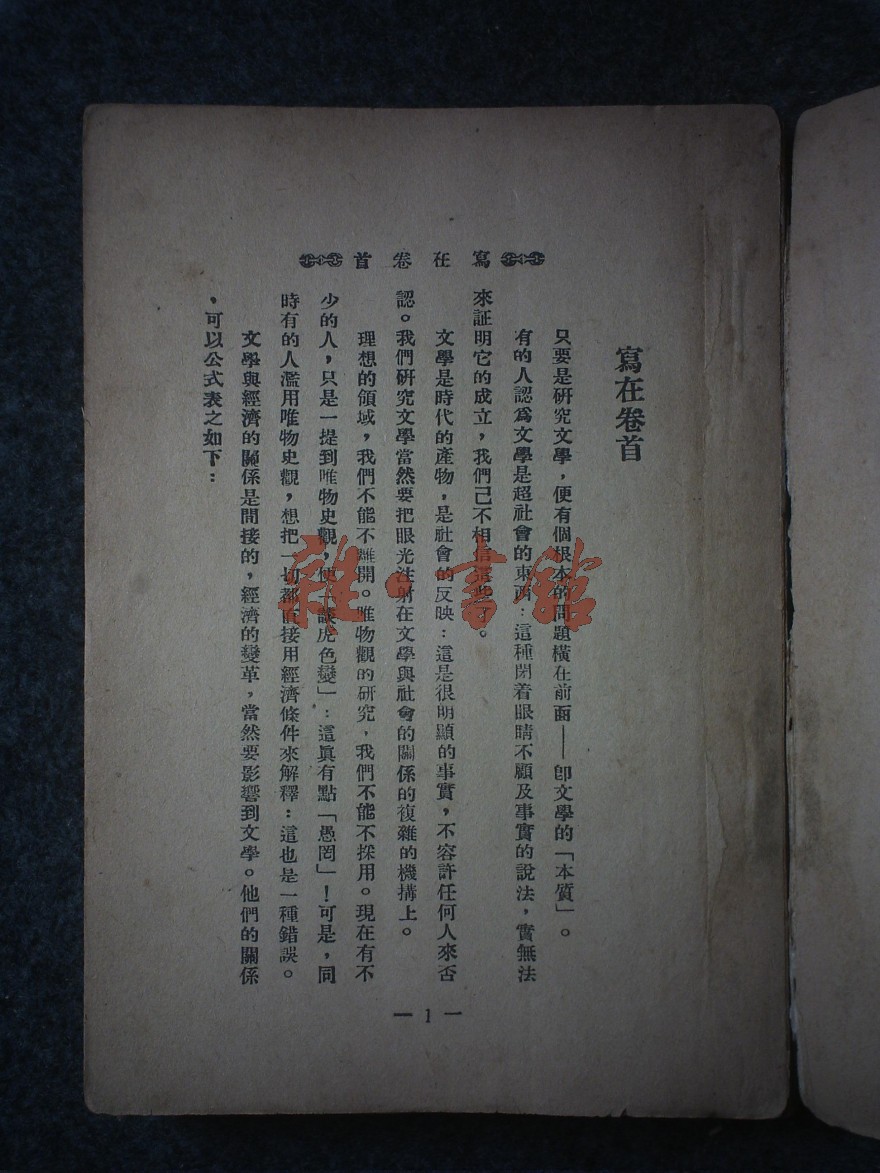 首卷在寫
寫在卷首
只要是研究文學，便有個根本的問題橫在前面——卽文學的「本質」。
有的人認爲文學是超社會的東西：這種閉着眼睛不顧及事實的說法，實無法
來証明它的成立，我們己不相信這些了。
文學是時代的產物，是社會的反映：這是很明顯的事實，不容許任何人來否
認。我們研究文學當然要把眼光注射在文學與社會的關係的複雜的機搆上。
理想的領域，我們不能不離開。唯物觀的研究，我們不能不採用。現在有不
少的人，只是一提到唯物史觀，便「談虎色變」：這眞有點「愚罔」！可是，同
時有的人濫用唯物史觀，想把一切都直接用經濟條件來解釋：這也是一種錯誤。
文學與經濟的關係是間接的，經濟的變革，當然要影響到文學。他們的關係
，可以公式表之如下：
— 1 —
雜·書館